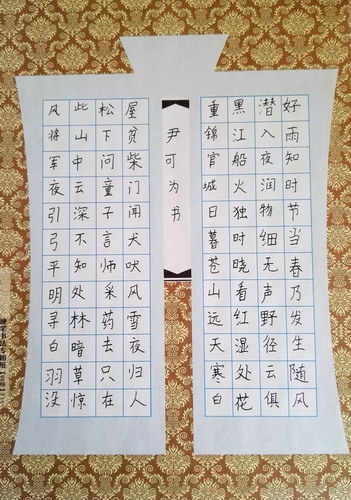 好雨知时节当春乃发生随风
潜入夜润物细无声野径云俱
黑江船火独时晓看红湿处花
重锦官城日暮苍山远天寒白
尹可为书
屋贫柴门闻犬吠风雪夜归人
松下问童子言师采药去只在
此山中云深不知处林暗草惊
风将军夜引弓平明寻白羽没